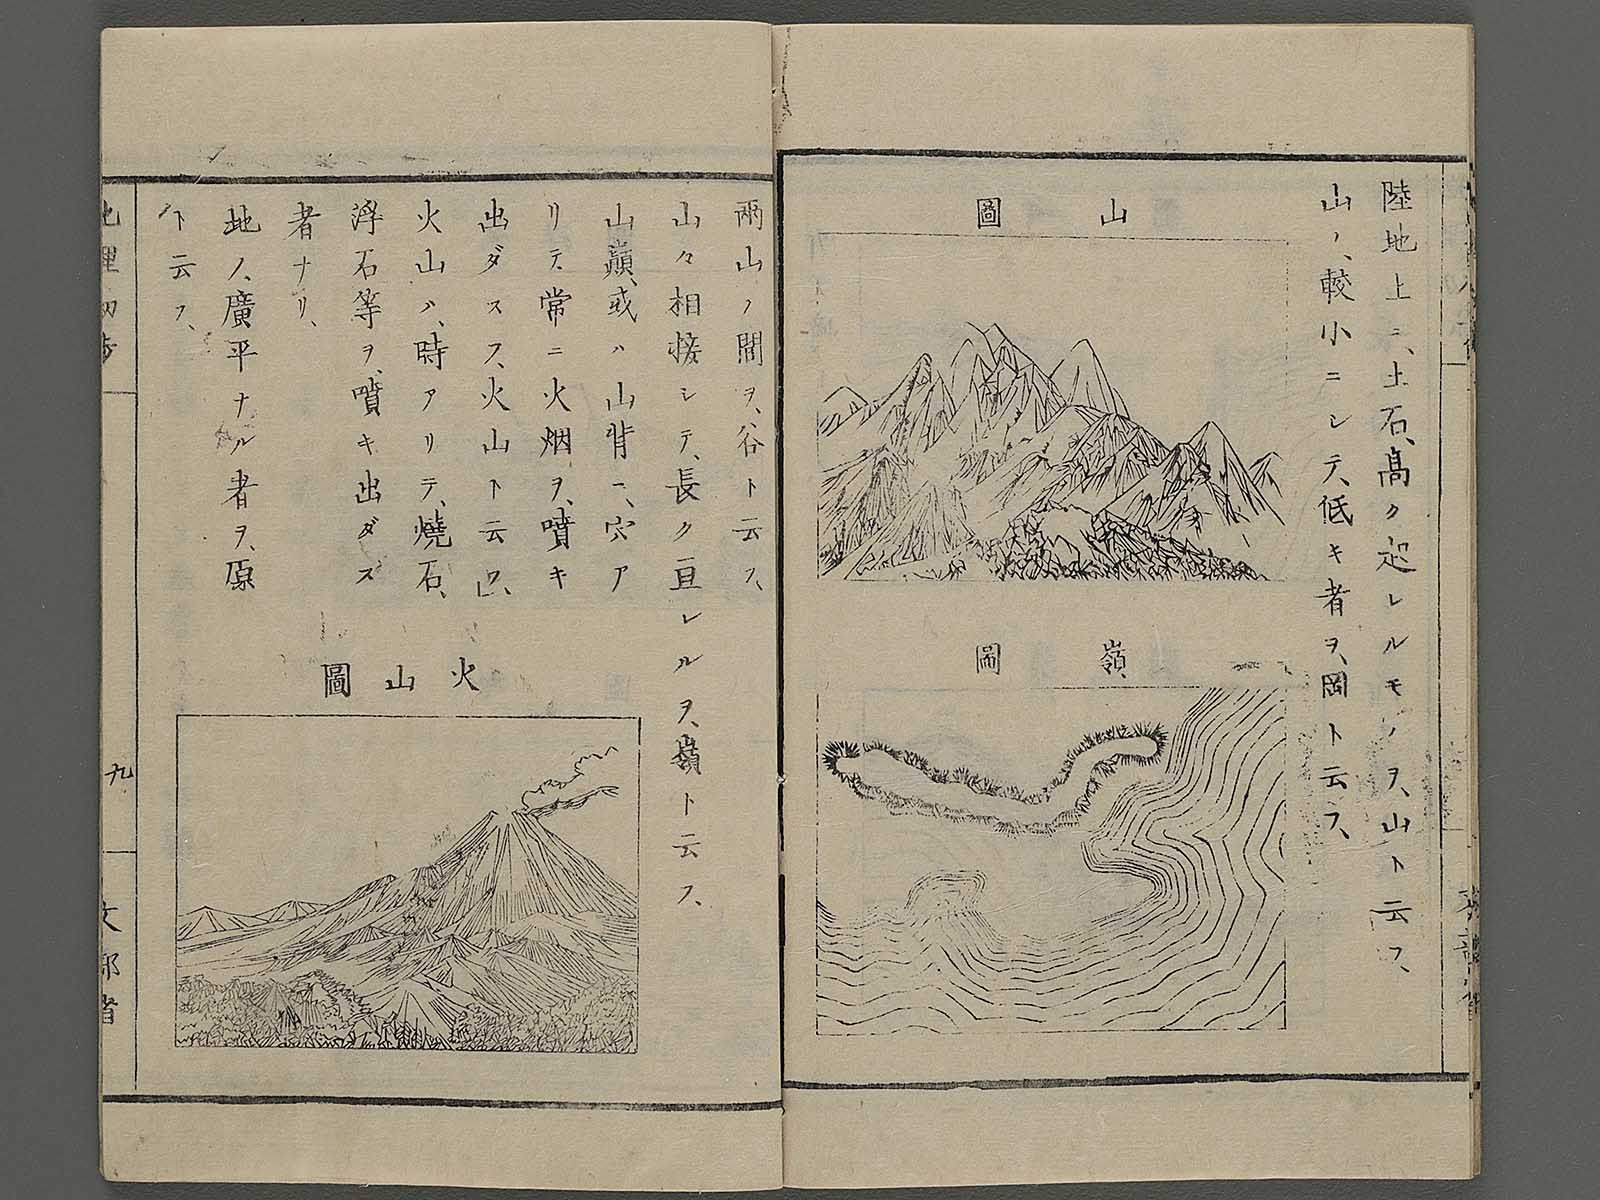 陸地上ニ、土石、高ク起レルモノヲ、山ト云フ、
山ノ、較小ニシテ、低キ者ヲ、岡ト云フ、
山圖
嶺圖
兩山ノ間ヲ、谷ト云フ、
山々相接シテ、長ク亘レルヲ、嶺ト云フ、
山巓、或ハ山背ニ、穴ア
リテ、常ニ火烟ヲ、噴キ
出ダスヲ、火山ト云フ、
火山ハ、時アリテ、燒石、
浮石等ヲ、噴キ出ダス
者ナリ、
地ノ、廣平ナル者ヲ、原
ト云フ、
火山圖
地理初歩
九
文部省